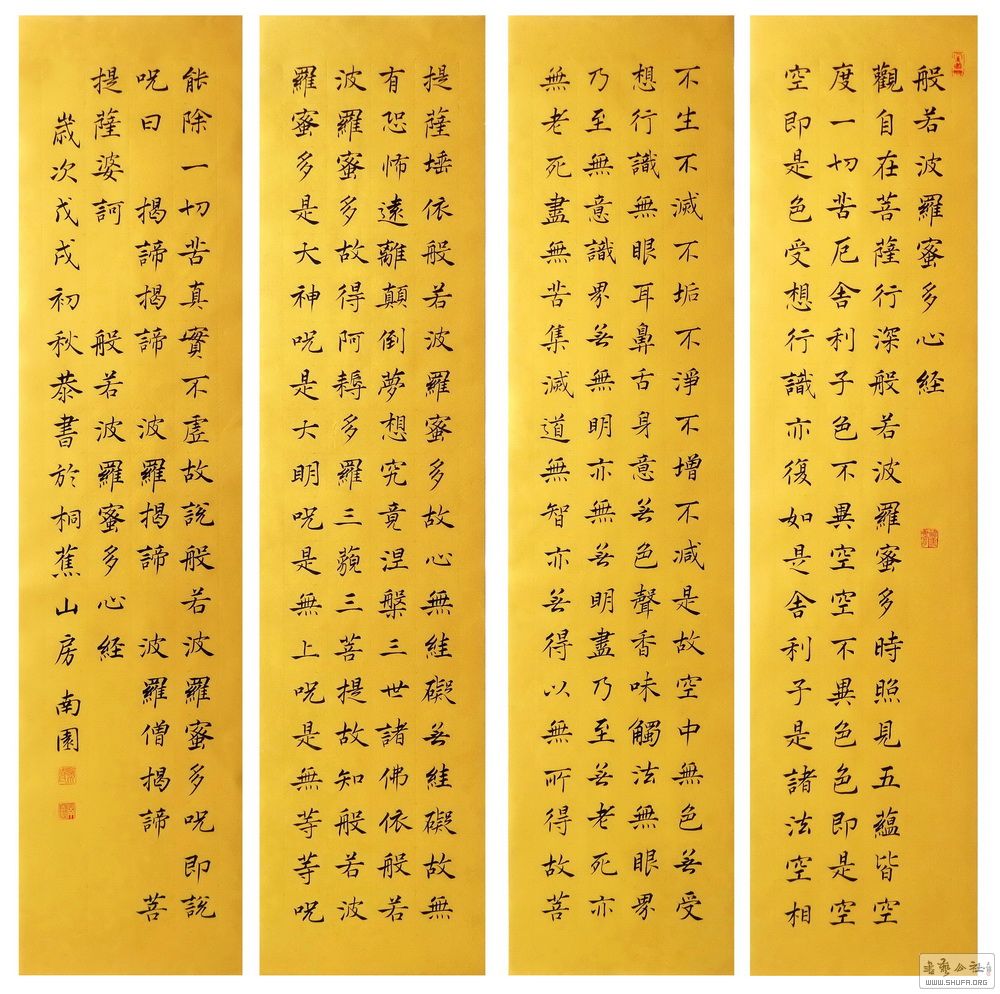 般若波羅蜜多心経
觀自在菩薩行深般若波羅蜜多時照見五蘊皆空
度一切苦厄舍利子色不異空空不異色色即是空
空即是色受想行識亦復如是舍利子是諸法空相
不生不滅不垢不淨不增不減是故空中無色无受
想行識無眼耳鼻舌身意无色聲香味觸法無眼界
乃至無意識界无無明亦無无明盡乃至无老死亦
無老死盡無苦集滅道無智亦无得以無所得故菩
提薩埵依般若波羅蜜多故心無絓礙无絓礙故無
有恐怖遠離顛倒夢想究竟涅槃三世諸佛依般若
波羅蜜多故得阿耨多羅三藐三菩提故知般若波
羅蜜多是大神呪是大明呪是無上呪是無等等呪
能除一切苦真實不虛故說般若波羅蜜多呪即說
呪曰 揭諦揭諦 波羅揭諦 波羅僧揭諦 菩
提薩婆訶 般若波羅蜜多心経
歲次戊戌初秋恭書於桐蕉山房 南園
WWW.SHUFA.ORG